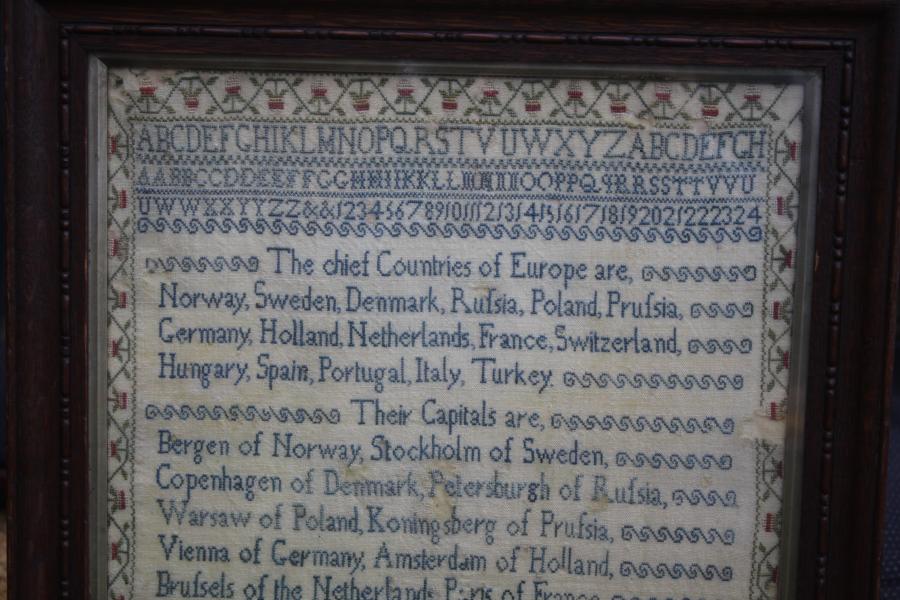 ABCDEFGHIKLMNOPQRSTVUWXYZABCDEFGH
AABBCCDDEEFFGGHHIIKKLLMMNNOOPPQQRRSSTTVVU
UWWXXYYZZ&&123456789101112131415161718192021222324
The chief Countries of Europe are,
Norway, Sweden, Denmark, Ruſsia, Poland, Pruſsia,
Germany, Holland, Netherlands, France, Switzerland,
Hungary, Spain, Portugal, Italy, Turkey.
Their Capitals are,
Bergen of Norway, Stockholm of Sweden,
Copenhagen of Denmark, Petersburgh of Ruſsia,
Warsaw of Poland, Koningsberg of Pruſsia,
Vienna of Germany, Amsterdam of Holland,
Bruſsels of the Netherlands, Paris of France